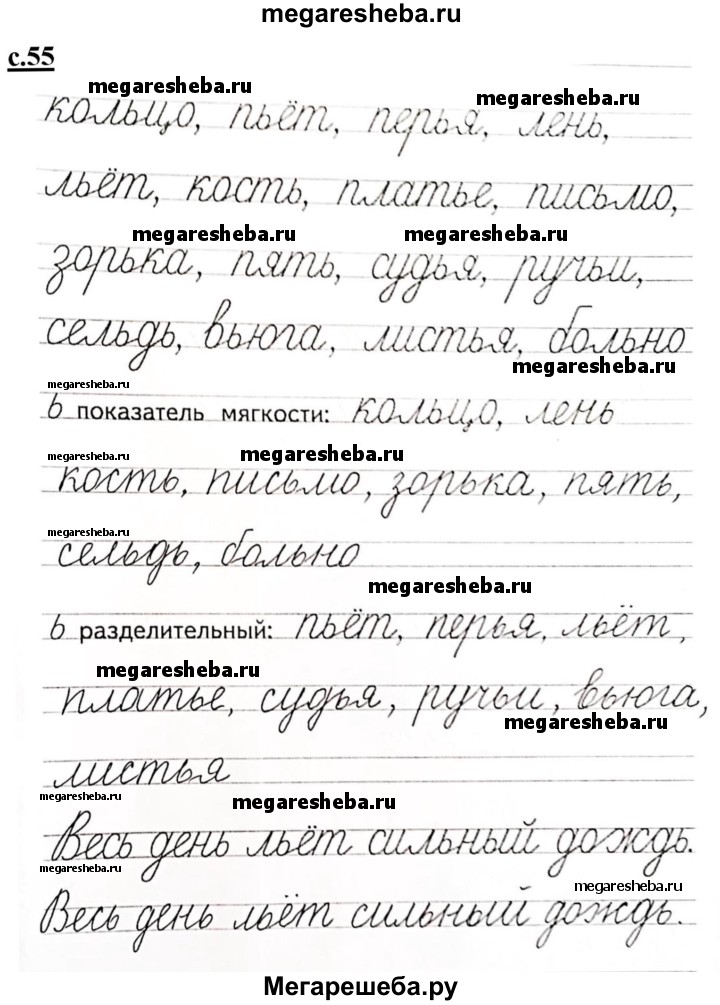 megaresheba.ru
с.55
megaresheba.ru
megaresheba.ru
кольцо, пьёт, перья, лень,
льёт, кость, платье, письмо,
megaresheba.ru megaresheba.ru
зорька, пять, судья, ручьи,
сельдь, вьюга, листья, больно
megaresheba.ru
megaresheba.ru
ь показатель мягкости: кольцо, лень
megaresheba.ru
кость, письмо, зорька, пять,
megaresheba.ru
сельдь, больно
megaresheba.ru
ь разделительный: пьёт, перья, льёт,
megaresheba.ru
платье, судья, ручьи, вьюга,
megaresheba.ru
листья
megaresheba.ru megaresheba.ru
Весь день льёт сильный дождь.
megaresheba.ru megaresheba.ru
Весь день льёт сильный дождь.
Мегарешеба.ру